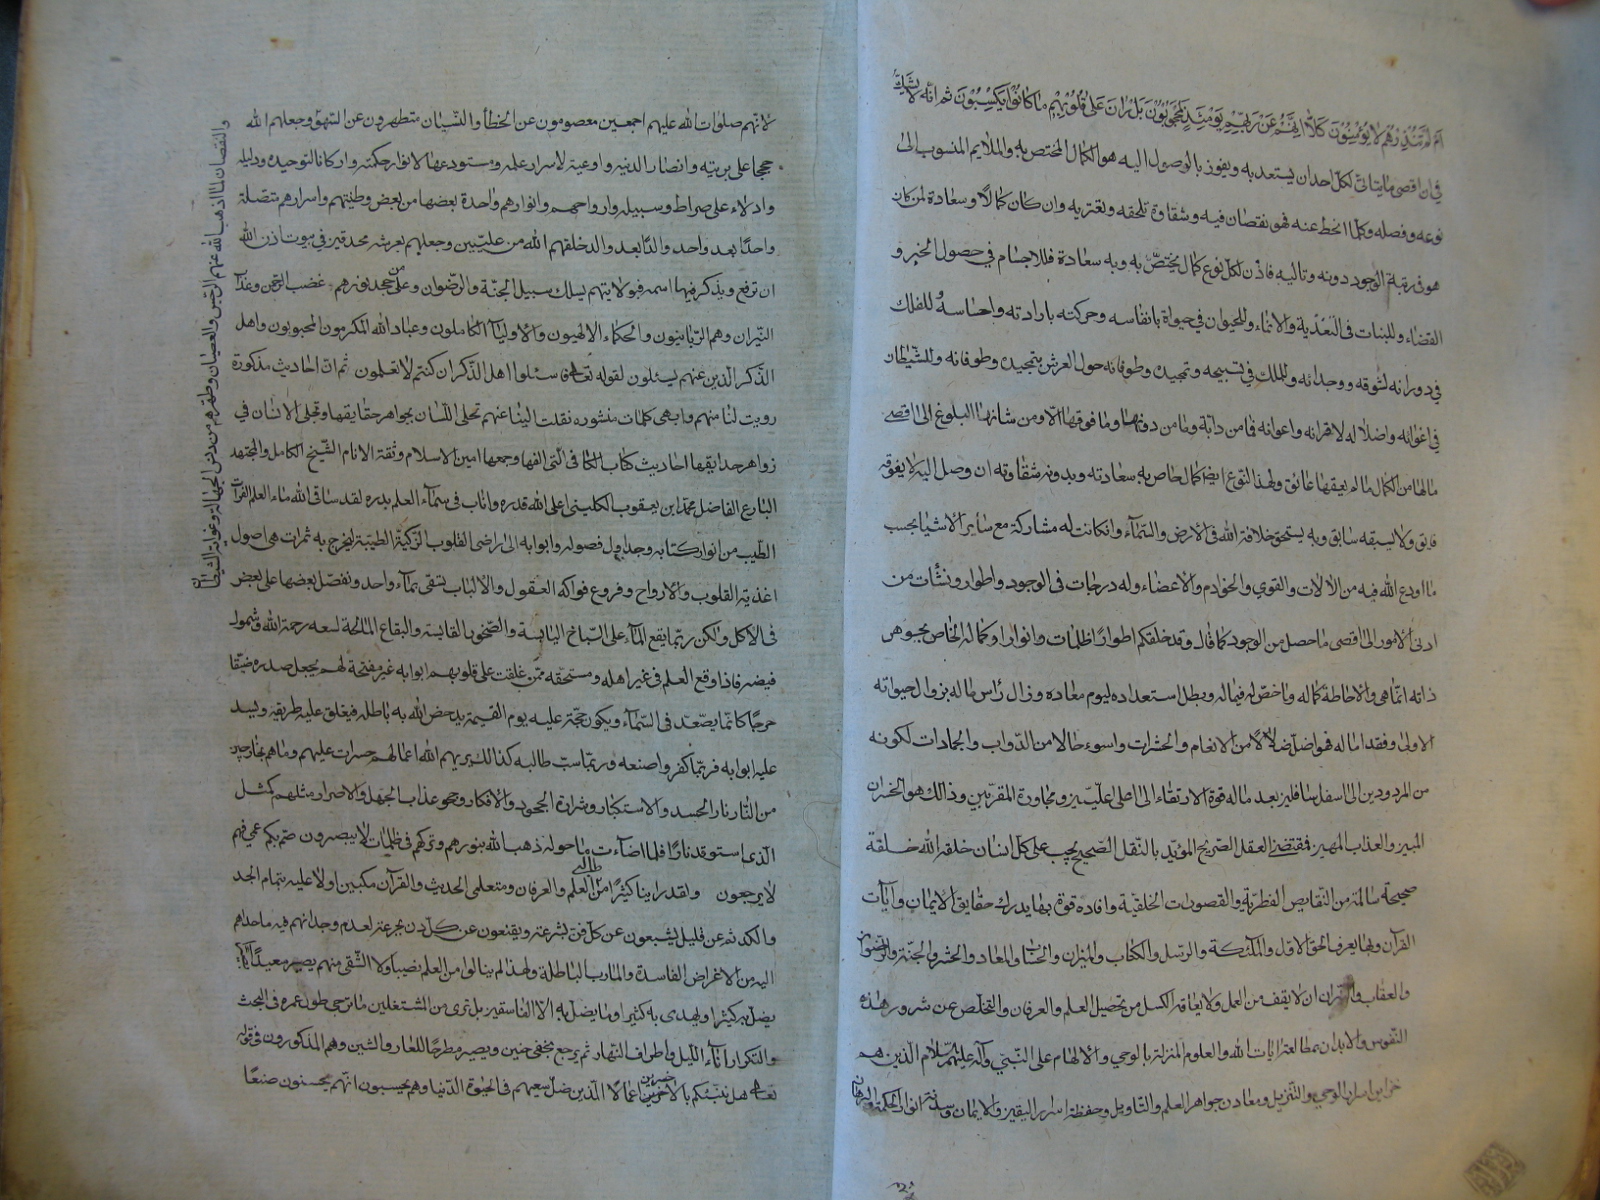 ام لم تنذرهم لا يؤمنون كلا انهم عن ربهم يومئذ لمحجوبون بل ران على قلوبهم ما كانوا يكسبون ثم انه لا شك
في ان اقصى ما يتاتى لكل احد ان يستعد به ويفوز بالوصول اليه هو الكمال المختص به والملايم المنسوب الى
نوعه وفصله وكلما انحط عنه فهو نقصان فيه وشقاوة تلحقه وتعتريه وان كان كمالا وسعادة لمن كان
هو في رتبة الوجود دونه وتاليه فاذن لكل نوع كمال يختص به وبه سعادة فللاجسام في حصول الخير و
القضاء وللنبات في التغذية والانماء وللحيوان في حيوة بانفاسه وحركته بارادته واحساسه وللفلك
في دورانه لشوقه ووجدانه وللملك في تسبيحه وتمجيده وطوفانه حول العرش بتمجيده وطوفانه وللشيطان
في اغوائه واضلاله لاقرانه واعوانه فما من دابة وما من دونها وما فوقها الا ومن شانها البلوغ الى اقصى
مالها من الكمال ما لم يعقها عائق ولهذا النوع ايضا كمال خاص به سعادته وبدونه شقاوته ان وصل اليه لا يفوقه
فايق ولا يسبقه سابق وبه يستحق خلافة الله في الارض والسماء وان كانت له مشاركة مع ساير الاشيا بحسب
ما اودع الله فيه من الالات والقوى والخوادم والاعضاء وله درجات في الوجود واطوار ونشأت من
ادنى الامور الى اقصى ما حصل من الوجود كما قال وقد خلقكم اطوارا ظلمات وانوارا وكماله الخاص بجوهر
ذاته انما هي والاحاطة كماله وما خص له فيماله وبطل استعداده ليوم معاده وزال رأس ماله بزوال حيواته
الاولى وفقد اماله فهو اضل ضلالا من الانعام والحشرات واسوء حالا من الدواب والجمادات لكونه
من المردودين الى اسفل سافلين بعد ماله قوة الارتقاء الى اعلى عليين ومجاورة المقربين وذالك هو الخسران
المبين والعذاب المهين فمقتضى العقل الصريح المؤيد بالنقل الصحيح يجب على كل انسان خلقه الله خلقة
صحيحة سالمة من النقايص الفطرية والقصورات الخلقية وافاده قوة بها يدرك حقايق الايمان وآيات
القرآن وبها يعرف الحق الاول والملئكة والرسل والكتاب والميزان والحساب والمعاد والحشر والجنة والرضوان
والعقاب والنيران ان لا يقف من العمل ولا يعاقه الكسل من تحصيل العلم والعرفان والتخلص عن شرور هذه
النفوس والابدان بمطالعة ايات الله والعلوم المنزلة بالوحي والالهام على النبي وآله عليهم السلام الذين هم
خزاين اسرار الوحي والتنزيل ومعادن جواهر العلم والتاويل وحفظة اسرار اليقين والايمان وسدنة انوار الحكمة والبرهان
لانهم صلوات الله عليهم اجمعين معصومون عن الخطأ والنسيان متطهرون عن السهو وجعلهم الله
حججا على بريته وانصارا لدينه واوعية لاسرار علمه ومستودعها لانوار حكمته واركانا لتوحيده ودليله
وادلاء على صراط وسبيله وارواحهم وانوارهم واحدة بعضها من بعض وطينتهم واسرارهم متصلة
واحدا بعد واحد والدا بعد والد خلقهم الله من عليين وجعلهم بعرشه محدقين في بيوت اذن الله
ان ترفع ويذكر فيها اسمه فبولايتهم يسلك سبيل الجنة والرضوان وعلى من جحد نورهم غضب الرحمن وعذاب
النيران وهم الربانيون والحكماء الالهيون والاولياء الكاملون وعباد الله المكرمون المحبوبون واهل
الذكر الذين عنهم يسئلون لقوله تعالى سئلوا اهل الذكر ان كنتم لا تعلمون ثم ان احاديث مذكورة
رويت لنا منهم وابهى كلمات منشوره نقلت الينا عنهم تحلى اللسان بجواهر حقايقها وتجلى الانسان في
زواهر حدايقها احاديث كتاب الكافي التي الفها وجمعها امين الاسلام وثقة الانام الشيخ الكامل والمجتهد
البارع الفاضل محمد ابن يعقوب الكليني اعلى الله قدره واناب في سماء العلم بدره لقد ساق الله ماء العلم القراح
الطيب من انوار كتابه وجداول فصوله وابوابه الى اراضي القلوب الزكية الطيبة ليخرج به ثمرات هي اصول
اغذية القلوب والارواح وفروع فواكه العقول والالباب تسقى بماء واحد ونفضل بعضها على بعض
في الاكل ولكن ربما يقع الماء على السباخ اليابسة والصخور القاسية والبقاع المالحة لسعه رحمة الله وشموله
فيضه فاذا وقع العلم في غير اهله ومستحقه ممن غلقت على قلوبهم ابوابه غير مفتحة لهم يجعل صدره ضيقا
حرجا كانما يصعد في السماء ويكون حجة عليه يوم القيمة يدحض الله به باطله فيغلق عليه طريقه ويسد
عليه ابوابه فربما كفر واصنعه وربما ست طالبه كذالك يريهم الله اعمالهم حسرات عليهم وما هم بخارجين
من النار نار الحسد والاستكبار وشرارة الجحود والافكار وحمو عذاب الجهل والاصرار مثلهم كمثل
الذي استوقد نارا فلما اضآءت ما حوله ذهب الله بنورهم وتركهم في ظلمات لا يبصرون صم بكم عمي فهم
لا يرجعون ولقد راينا كثيرا من طالبي العلم والعرفان ومتعلمي الحديث والقرآن مكبين اولا عليه بتمام الجد
والكد ثم عن قليل يشبعون عن كل فن بشرعة ويقنعون عن كل دن بجرعة لعدم وجدانهم فيه ما حداهم
اليه من الاغراض الفاسدة والمارب الباطلة ولهذا لم ينالوا من العلم نصيبا ولا الشقي منهم يصير سعيدا
يضل به كثيرا ويهدى به كثيرا وما يضل به الا الفاسقين بل ترى من المشتغلين ما ترجى طول عمره في البحث
والتكرار اناء الليل واطراف النهار ثم يرجع بخفي حنين ويصير مطرحا للعار والشين وهم المذكورون في قوله
تعالى هل ننبئكم بالاخسرين اعمالا الذين ضل سعيهم في الحيوة الدنيا وهم يحسبون انهم يحسنون صنعا
والنقصان لما اذهب الله عنهم الرجس والعصيان وطهرهم من دنس الجهالة وغواية الشيطان